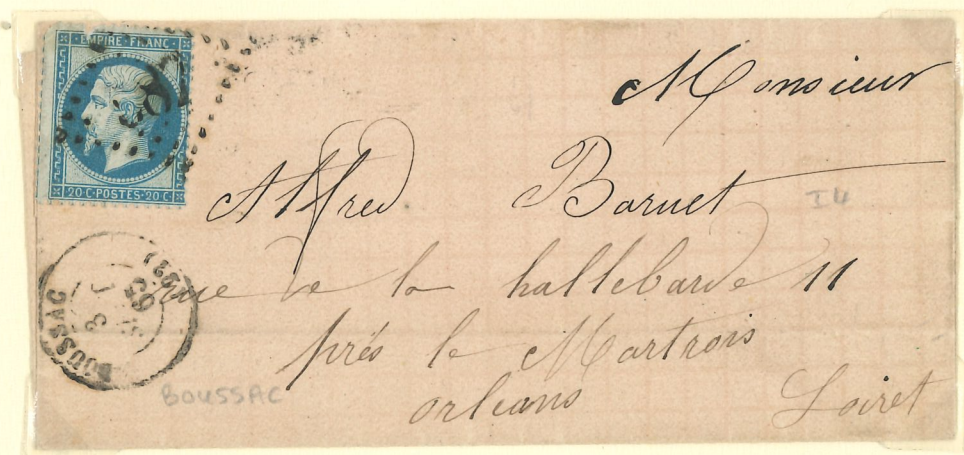 EMPIRE FRANC
20 C POSTES 20 C
Monsieur
Alfred Baruet
I4
rue de la hallebarde 11
près le Martrois
orleans Loiret
BOUSSAC
(22)
65
BOUSSAC